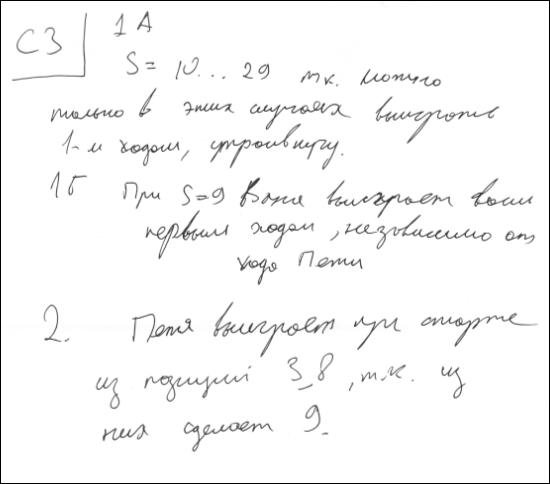 С3 1А
S = 10... 29 т.к. можно
только в этих случаях выиграть
1-м ходом, утроив кучу.
1Б При S=9 Ваня выиграет своим
первым ходом, независимо от
хода Пети
2. Петя выиграет при старте
из позиций 3_8, т.к. из
них сделает 9.